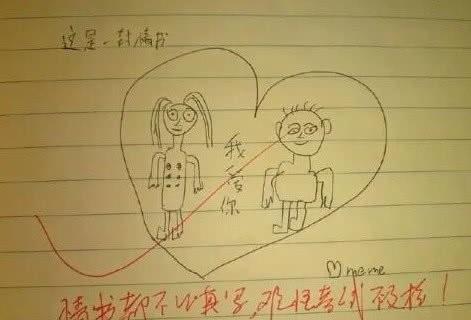 这是一封情书
我爱你
♡meme
情书都不认真写,难怪考试不及格!